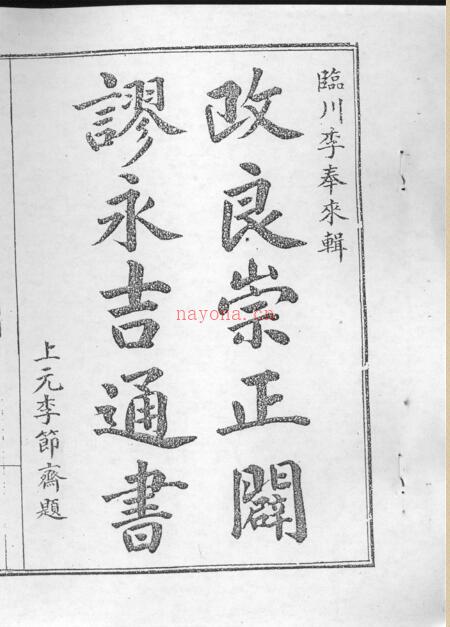 臨川李奉來輯
改良崇正闢
謬永吉通書
上元李節齋題
nayona.cn